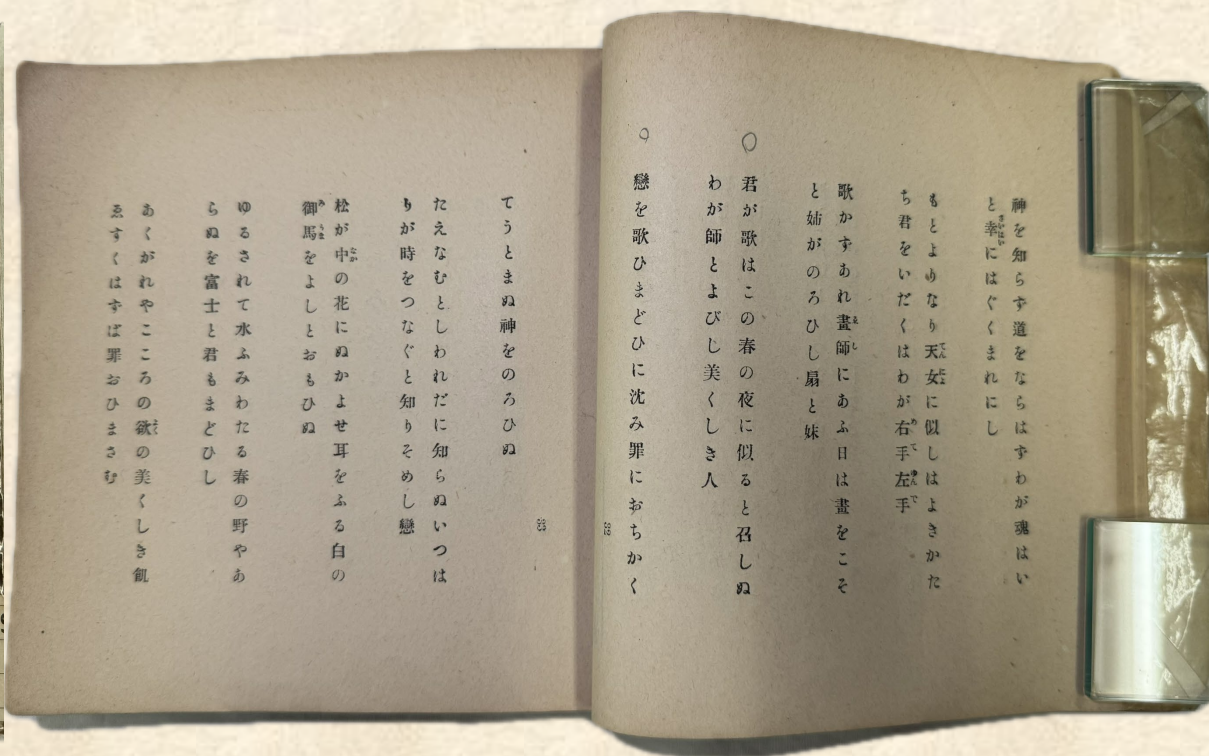 神を知らず道をならはずわが魂はい
と幸にはぐくまれにし
もとよりなり天女に似しはよきかた
ち君をいだくはわが右手左手
歌かずあれ畫師にあふ日は畫をこそ
と姉がのろひし扇と妹
君が歌はこの春の夜に似ると召しぬ
わが師とよびし美くしき人
戀を歌ひまどひに沈み罪におちかく
てうとまぬ神をのろひぬ
たえなむとしわれだに知らぬいつは
りが時をつなぐと知りそめし戀
松が中の花にぬかよせ耳をふる白の
御馬をよしとおもひぬ
ゆるされて水ふみわたる春の野やあ
らぬを富士と君もまどひし
あくがれやこころの欲の美くしき飢
ゑすくはずば罪おひまさむ